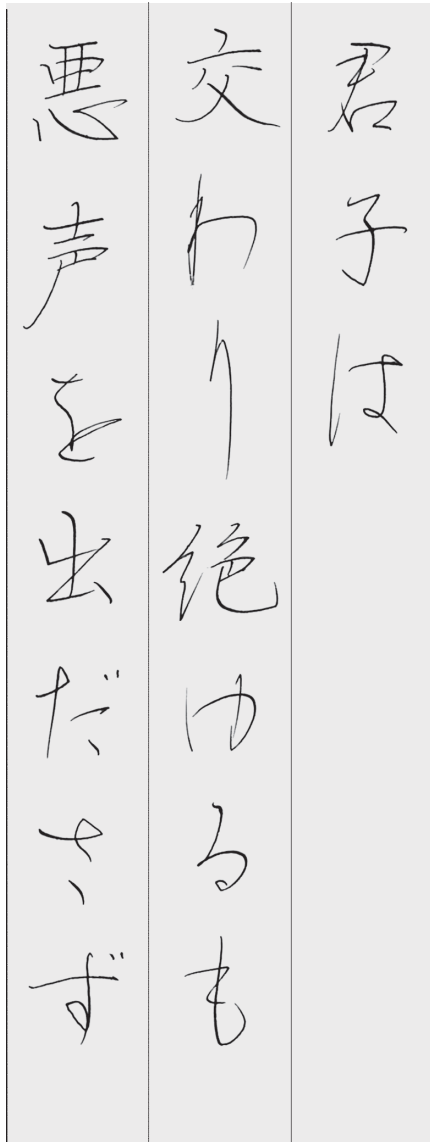 君子は
交わり絶ゆるも
悪声を出ださず